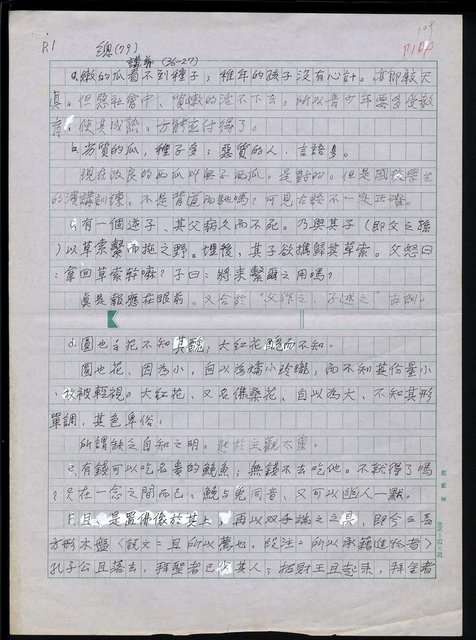 P.1
總(79)
講義(36-27)
109
P104
a.嫩的瓜看不到種子；稚年的孩子沒有心計。亦即較天
真。但惡社會中、質嫩的活不下去。所以青少年要多受教
育、使其成熟。方能應付得了。
b.劣質的瓜，種子多；惡質的人，言語多。
現在改良的西瓜即無子西瓜。是對的。但是國校學生
的演講訓練。不是背道而馳嗎？可見古諺不一定正確。
c.有一個逆子、其父病久而不死。乃與其子（即父之孫
）以草索繫而拖之野。埋後，其子欲攜歸其草索。父怒曰
：拿回草索幹嘛？子曰：將來繫爾之用嗎？
真是報應在眼前。又合於“父作之、子述之”古訓。
d.圓也花不知其醜；大紅花醜而不知。
圓也花、因為小，自以為嬌小玲瓏，而不知其份量小
、故被輕視。大紅花、又名佛桑花、自以為大、不知其形
單調，其色卑俗，
所謂缺乏自知之明。起於主觀太重。
e.有錢可以吃名貴的鮑魚；無錢不去吃他。不就得了嗎
？只在一念之間而已。鮑與免同音、又可以幽人一默。
f.且、是置佛像於其上、再以双手端之之具，即今之長
方形木盤〈說文：且所以薦也。段注：所以承藉進物者〉
孔子公且落去，拜聖者已少其人；招財王且起來，拜金者
20×25=500